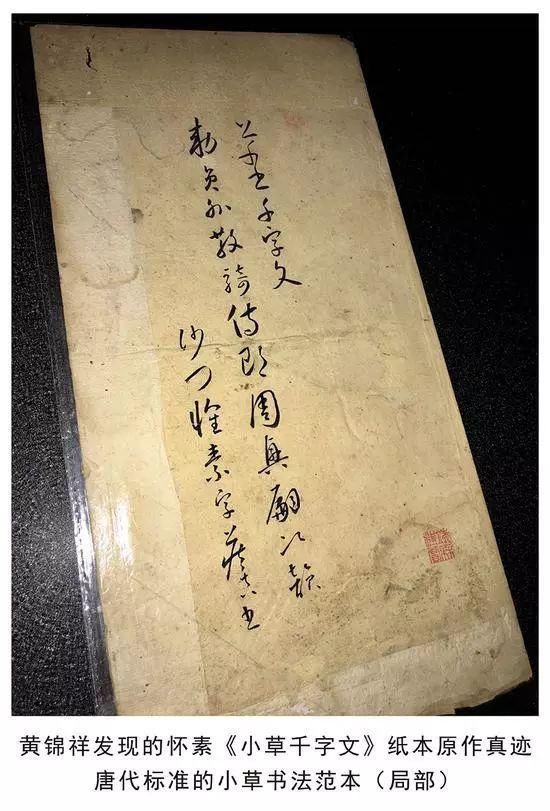 草書千字文
勅員外散騎侍郎周興嗣次韻
沙門懷素字藏真書
黄锦祥发现的怀素《小草千字文》纸本原作真迹
唐代标准的小草书法范本（局部）